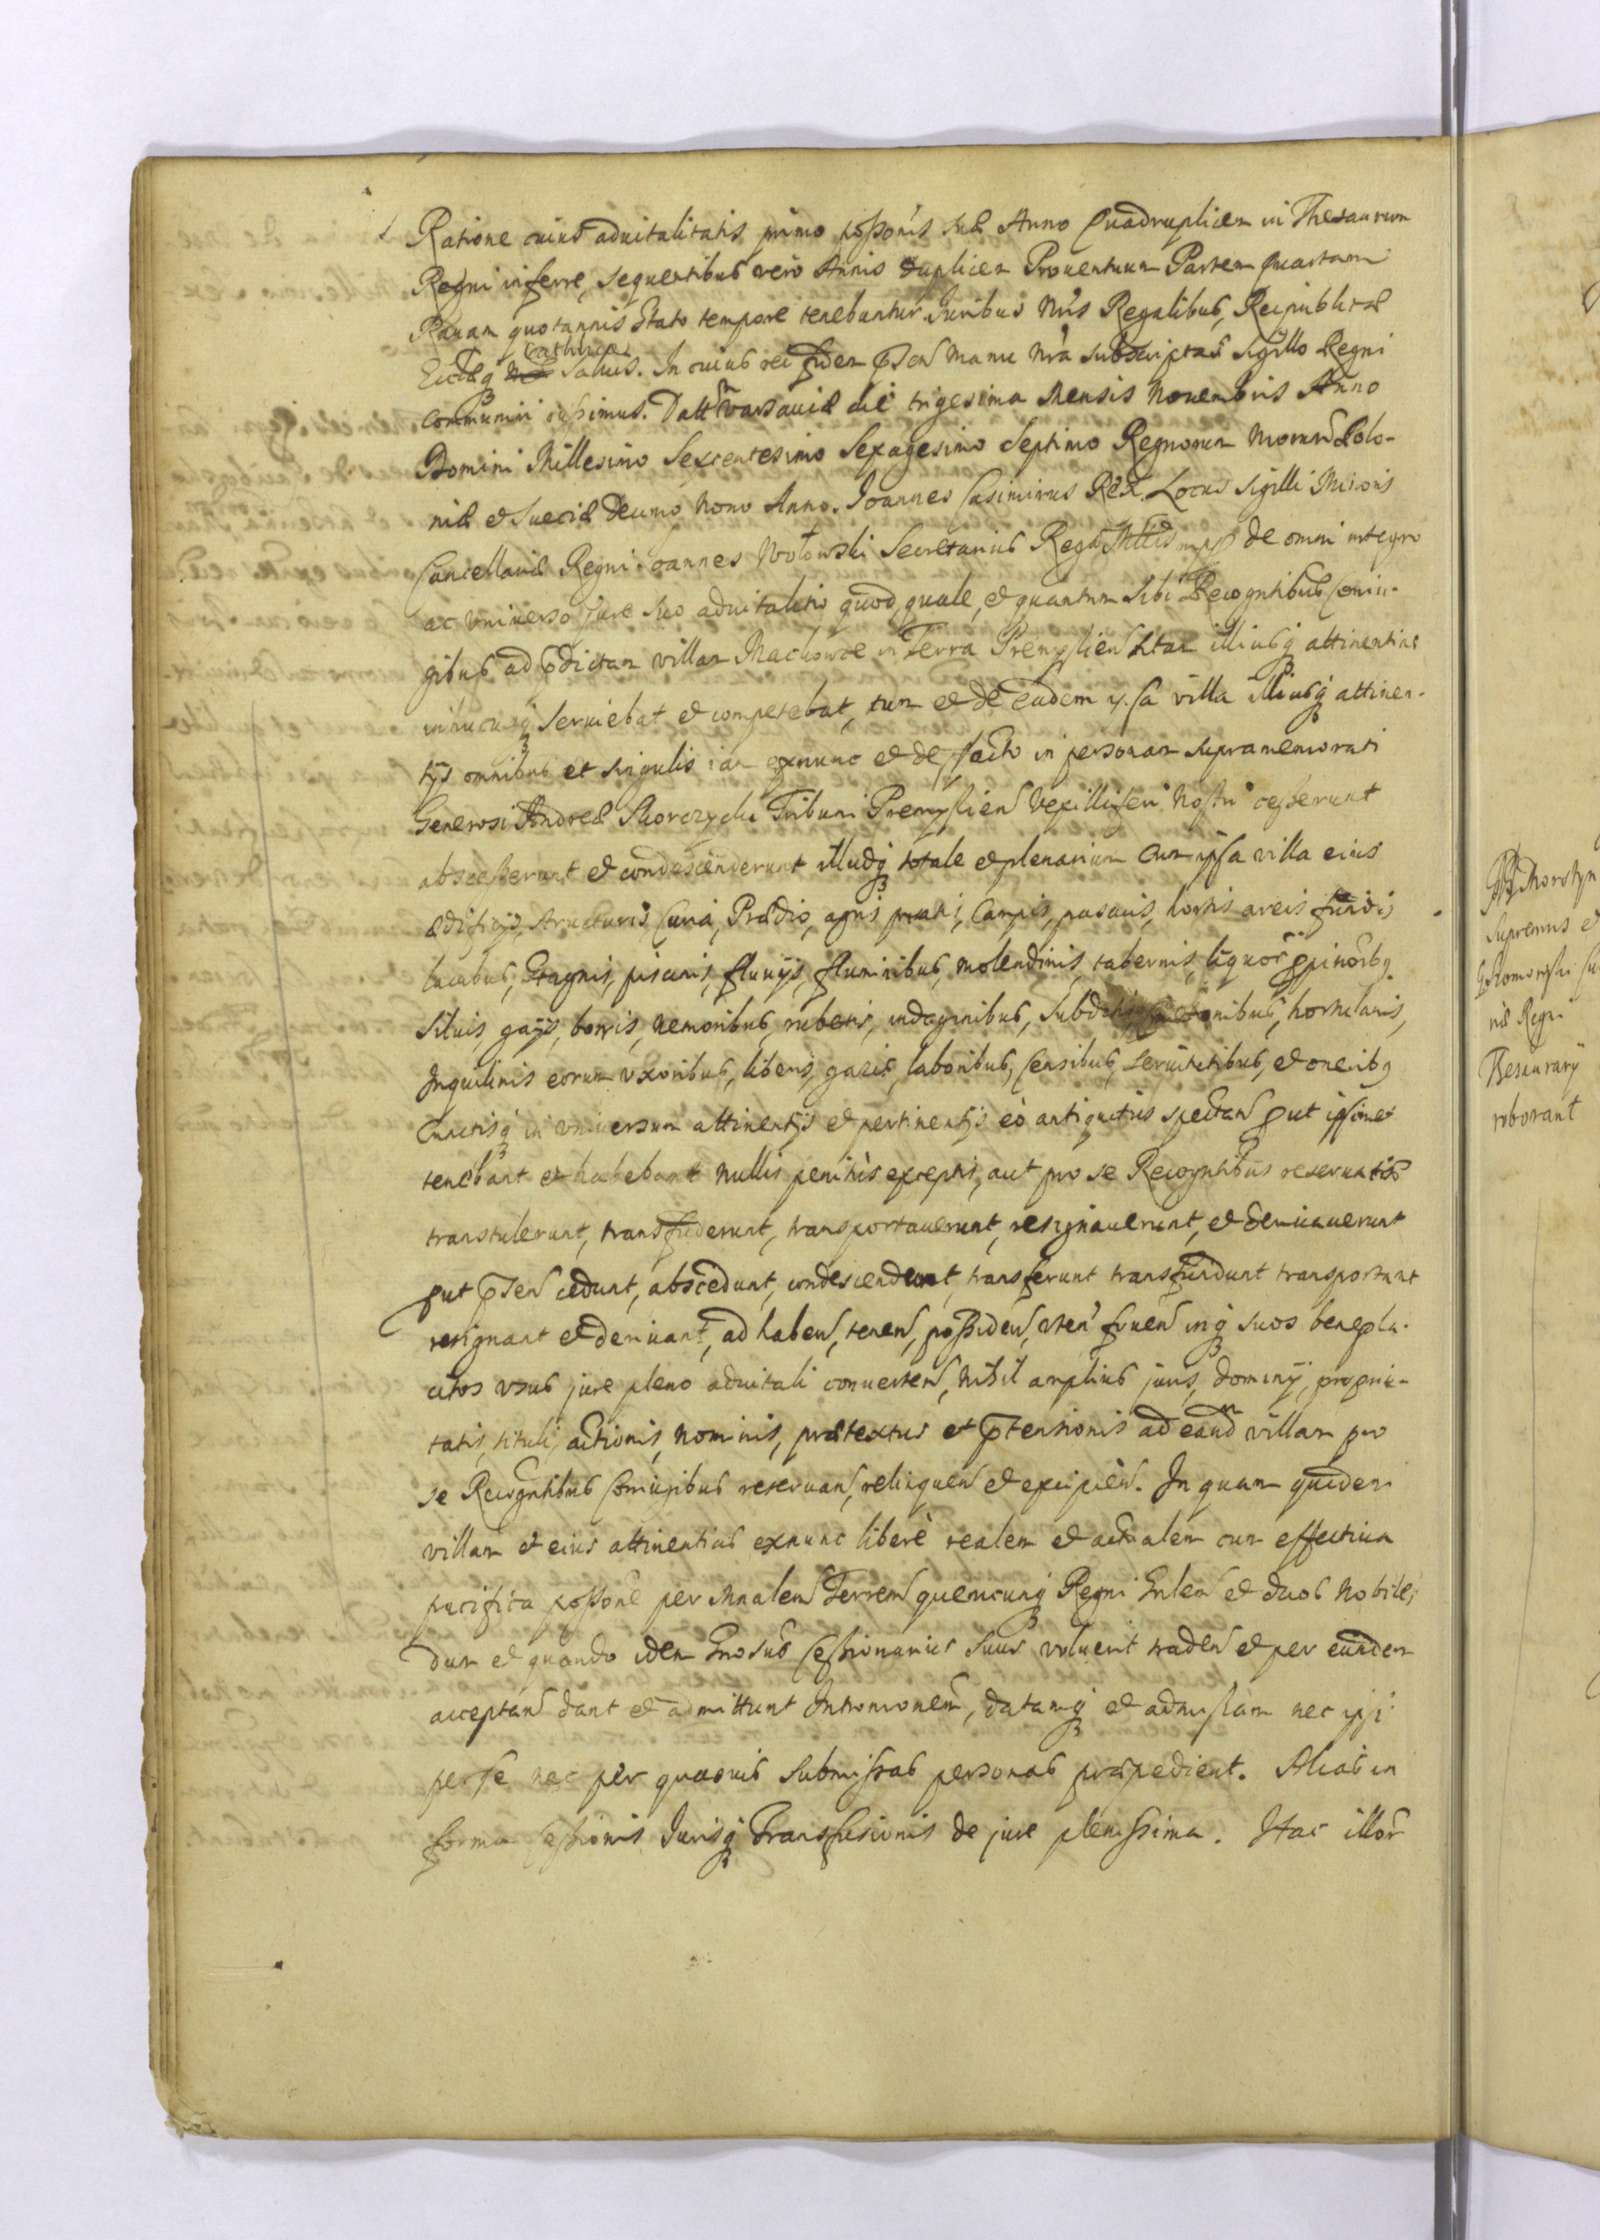 Ratione cuius aduitalitatis primo possonis suæ Anno Quadruplicem in Thesaurum
Regni inferre, sequentibus vero Annis duplicem Prouentuum Partem Quartam
Rauam quotannis stato tempore tenebuntur Juribus Nris Regalibus, Reipublicæ
Ecclæq Catholicæ Saluis. In cuius rei fidem pnten Manu Nra Subscriptas Sigillo Regni
communiri iussimus. Datt Varsauiæ die trigesima Mensis Nouembris Anno
Domini Millesimo Sexcentesimo Sexagesimo Septimo Regnorum Nrorum Polo-
niæ et Sueciæ Decimo Nono Anno. Joannes Casimirus Rex. Locus Sigilli Minoris
Cancellariæ Regni Joannes Wołowski Secretarius Regæ Mttis mpp de omni integro
ac vniuerso jure suo aduitalitio quod, quale, et quantum sibi Recogntibus Coniu-
gibus ad pdictam villam Mackowce in Terra Premyslien sitam illiusq attinentias
inhucusq seruiebat et competebat, tum et de eadem ipsa villa illiusq attinen-
tijs omnibus et singulis iam exnunc et de facto in personam supramemorati
Generosi Andreæ Skorczycki Tribuni Premyslien Vexilliferi Nostri cesserunt
abscesserunt et condescenderunt illudq totale et plenarium cum ipsa villa eius
ædificijs, structuris, Curia, Prædio, agris, pratis, Campis, pascuis, hortis areis fundis
lacubus, Stagnis, piscinis, fluuijs, fluminibus, molendinis, tabernis, liquor ppinorbq
Siluis, gaijs, borris, nemoribus, rubetis, indaginibus, Subditis, Cmetonibus, hortulanis,
Inquilinis eorum vxoribus, liberis, gazis, laboribus, Censibus, seruitutibus, et oneribq
Cunctisq in vniuersum attinentijs et pertinentijs eò antiquitus spectan put ipsimet
tenebant et habebant nullis penitùs exceptis, aut pro se Recogntibus reseruatis
transtulerunt, transfuderunt, transportauerunt, resignauerunt, et deriuauerunt
put pnten cedunt, abscedunt, condescendunt, transferunt transfundunt transportant
resignant et deriuant, ad haben, tenen, possiden, vten fruen inq suos benepla-
citos vsus jure pleno aduitali conuerten, Nihil amplius juris, dominij, proprie-
tatis, tituli, actionis, nominis, prætextus et ptensionis ad eand villam pro
se Recogntibus Coniugibus reseruan, relinquen et excipien. In quam quidem
villam et eius attinentias exnunc liberè realem et actualem cum effectiua
pacifica possone per Mnalem Terren quemcunq Regni Gnlem et duos Nobiles,
dum et quando idem Gnosus Cessionarius suus voluerit traden et per eundem
acceptan dant et admittunt Intromonem, datamq et admissam nec ipsi
per se nec per quasuis Submissas personas præpedient. Alias in
forma Cessionis Jurisq Transfusionis de jure plenissima. Hac illor
Supremus et
Regni
Thesaurarij
roborant